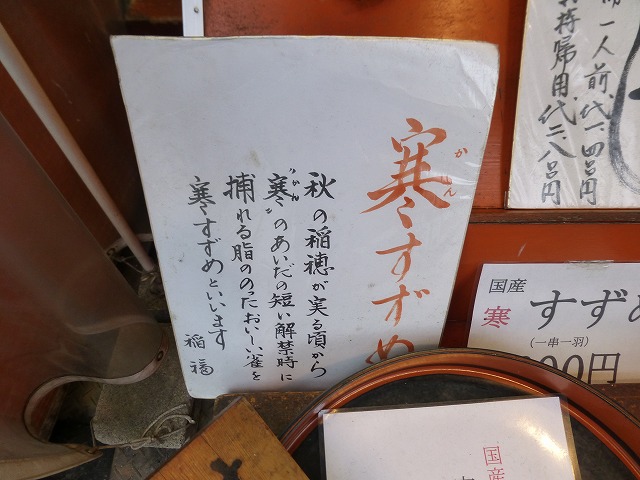 寒すずめ
かん
秋の稲穂が実る頃から
〝寒〟のあいだの短い解禁時に
かん
捕れる脂ののったおいしい雀を
寒すずめといいます
稲福
一人前代一、四〇円
お持帰用代二、八〇円
国産
寒すずめ
(一串一羽)
00円
国産